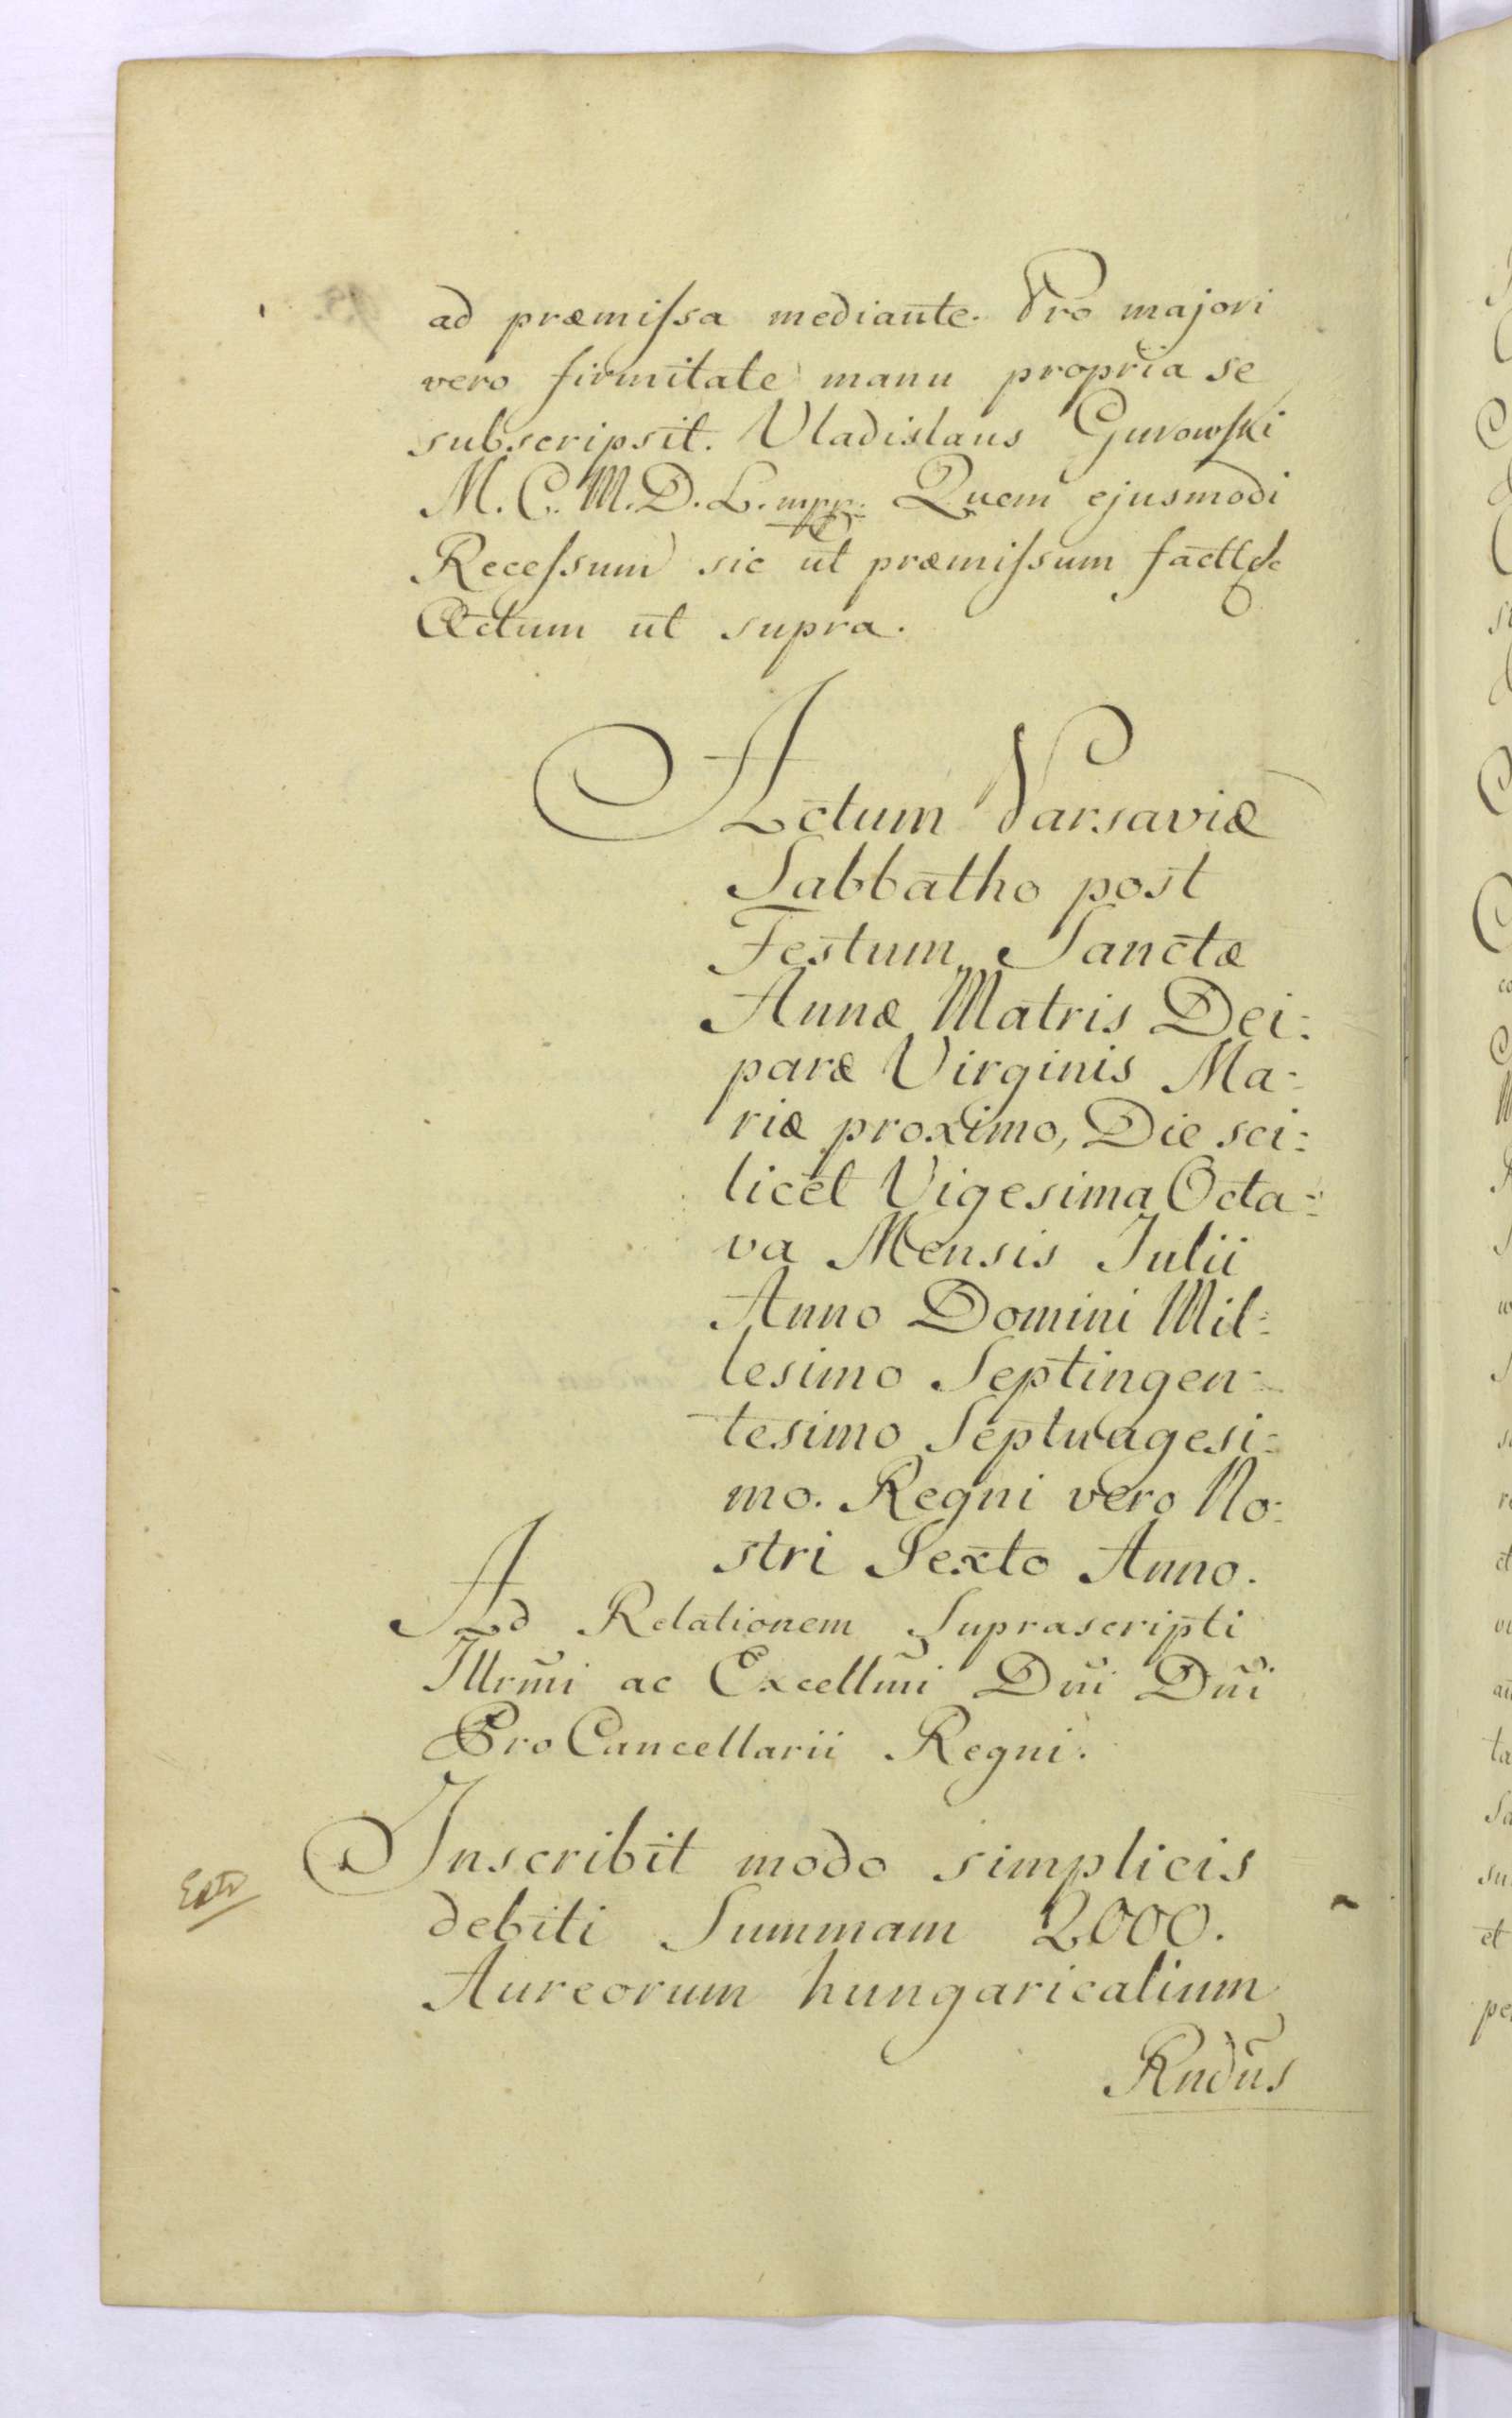 ad præmiſsa mediante. Pro majori
vero firmitate manu propria se
subscripsit. Vladislaus Gurowſki
M. C. M. D. L. mpp. Quem ejusmodi
Receſsum sic ut præmiſsum factt &c
Actum ut supra.
Actum Varsaviæ
Sabbatho post
Festum Sanctæ
Annæ Matris Dei:
paræ Virginis Ma:
riæ proximo, Die sci:
licet Vigesima Octa:
va Mensis Julii
Anno Domini Mil:
lesimo Septingen:
tesimo Septuagesi:
mo. Regni vero No:
stri Sexto Anno.
Ad Relationem Suprascripti
Illrm̃i ac Excellm̃i Dñi Dñi
Pro Cancellarii Regni.
Inscribit modo simplicis
debiti Summam 2000.
Aureorum hungaricalium
Rndũs